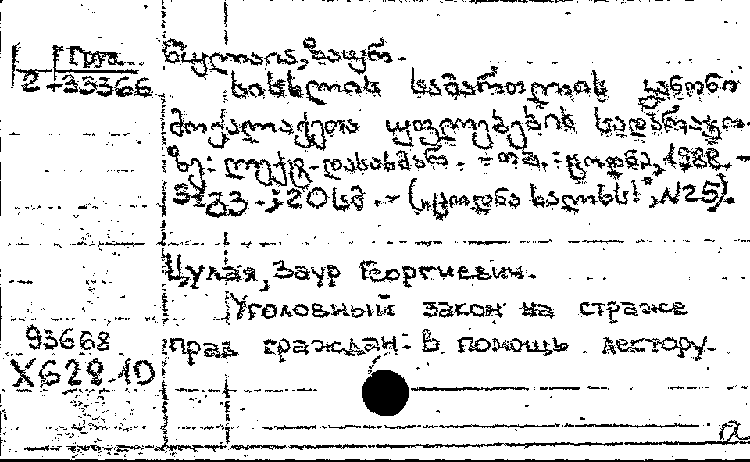 წულაია, ზაურ.
2-33366
სისხლის სამართლის კანონი
მოქალაქეთა უფლებების სადარაჯო-
ზე: ლექტ. დასახმარ. - თბ.: ცოდნა, 1988. -
გვ. ; 20 სმ. - („ცოდნა ხალხს!", N25).
Цулая, Заур Георгиевич.
Уголовный закон на страже
прав граждан: В помощь лектору.
93668
X628.1
a